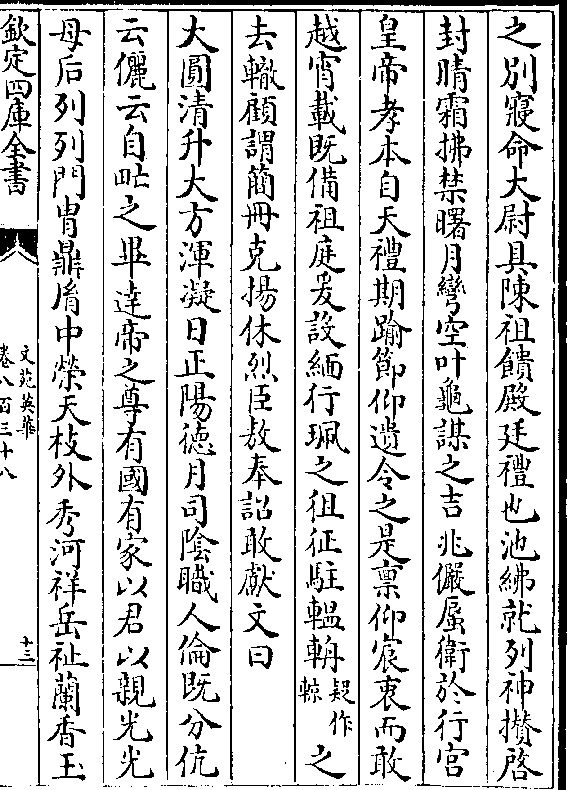 之别寢命大尉具陳祖饋殿廷禮也池紼就列神攅啓
封晴霜拂禁曙月彎空叶龜謀之吉兆儼蜃衛於行宫
皇帝孝本自天禮期踰節仰遺令之是禀仰宸衷而敢
越宵載既備祖庭爰設緬行珮之徂征駐輼輈疑作輬之
去轍顧謂簡冊克揚休烈臣敖奉詔敢獻文曰
大圓清升大方渾凝日正陽德月司陰職人倫既分伉
云儷云自甿之畢逹帝之尊有國有家以君以親光光
母后列列門胄鼎盾中榮天枝外秀河祥岳祉蘭香玉
欽定四庫全書
文苑英華
卷八百三十八
十三